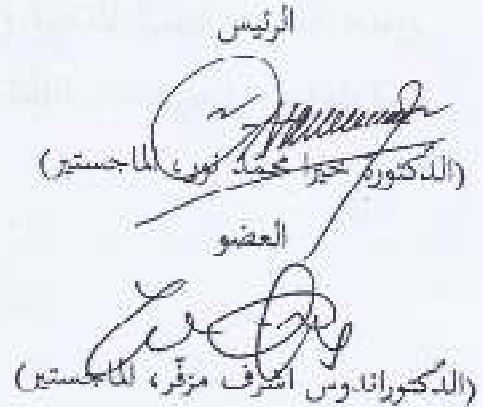 الرئيس
(الدكتورة خيرا محمد نور، الماجستير)
العضو
(الدكتوراندوس اشرف مزفّر، الماجستير)